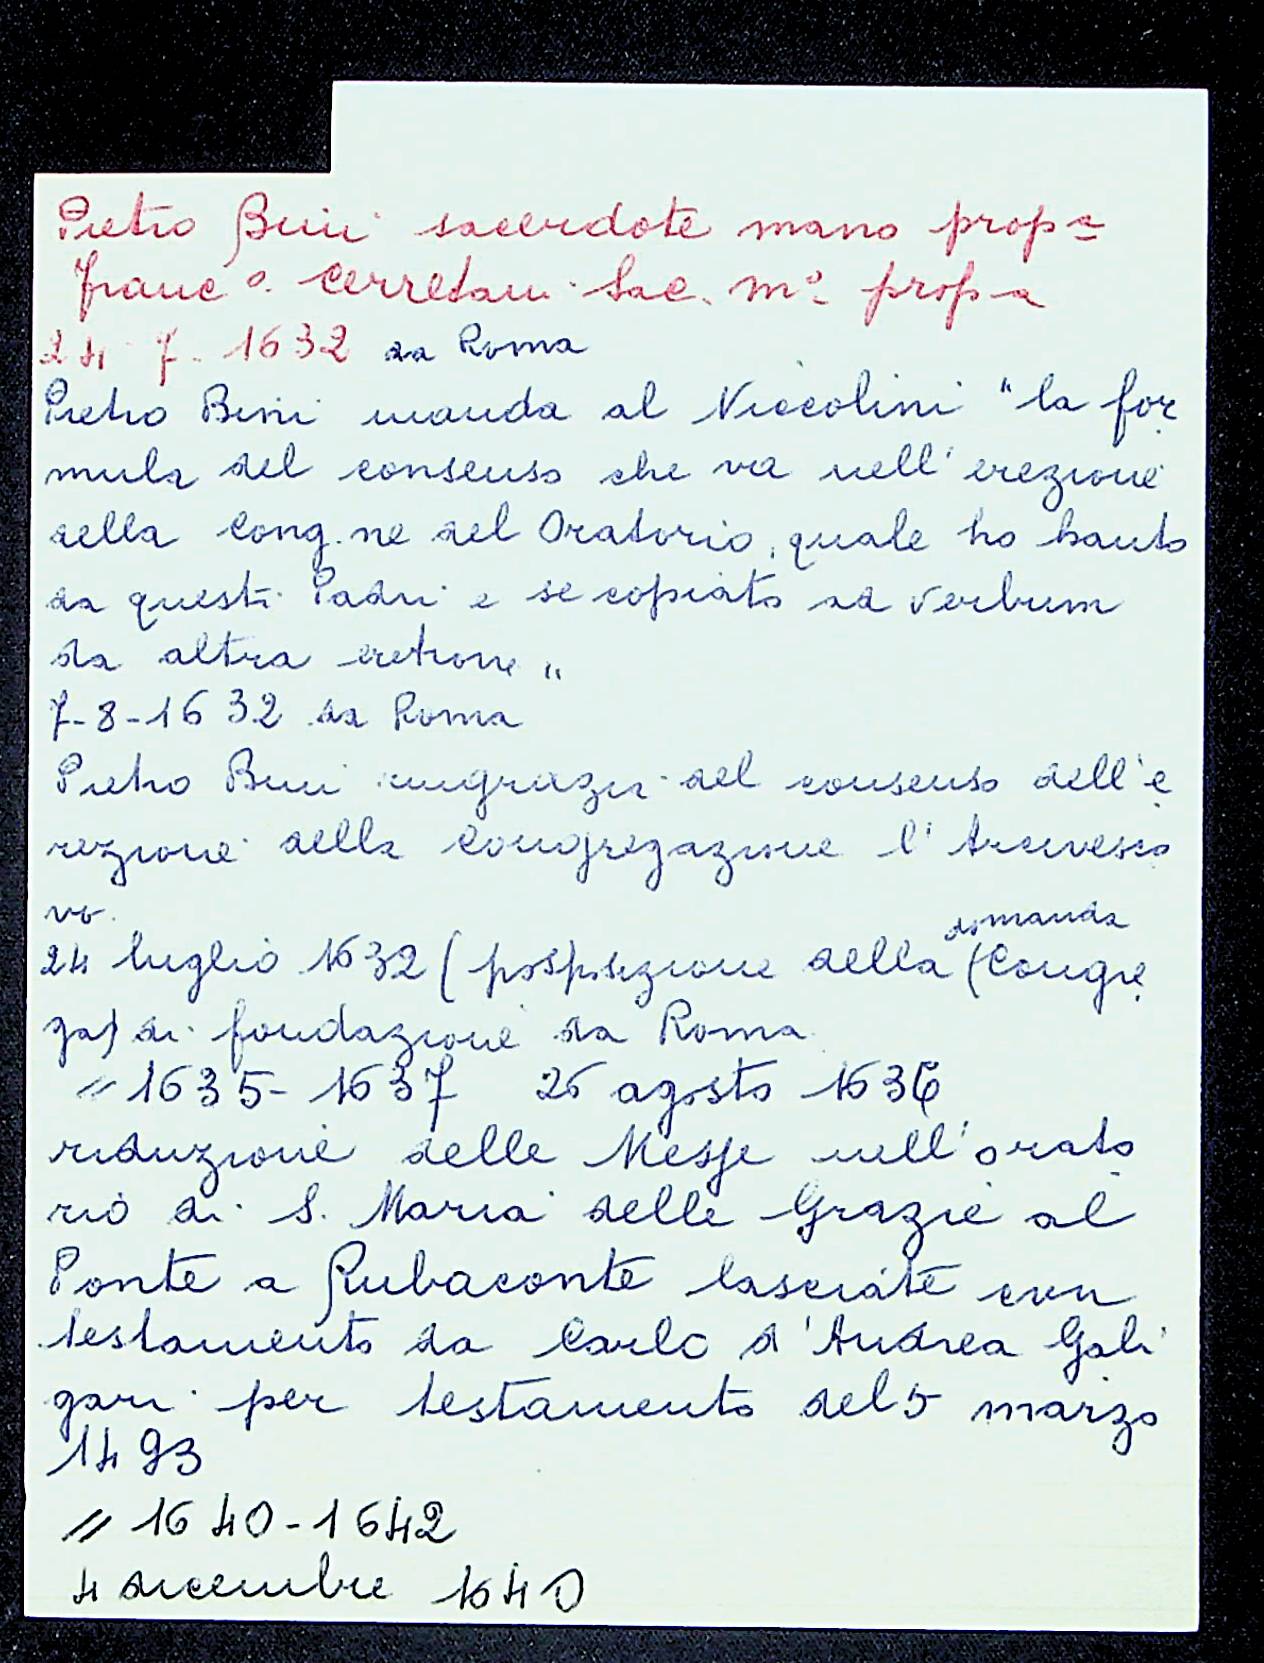 Pietro Bini sacerdote mano prop.a
Franc.o Cerretani Sac. m.o prop-a
24 7 - 1632 da Roma
Pietro Bini manda al Niccolini "la for
mula del consenso che va nell'erezione
della Cong.ne del Oratorio, quale ho hauto
da questi Padri e se copiato ad verbum
da altra eretione"
7-8-1632 da Roma
Pietro Bini ringrazia del consenso dell'e
rezione della Congregazione l'Arcivesco
vo.
24 luglio 1632 ( della domanda (Congre
ga) di fondazione da Roma
" 1635-1637 26 agosto 1636
riduzione delle Messe nell'orato
rio di S. Maria delle Grazie al
Ponte a Rubaconte lasciate
testamento da Carlo d'Andrea Gali
gari per testamento del 5 marzo
1493
" 1640-1642
4 dicembre 1640